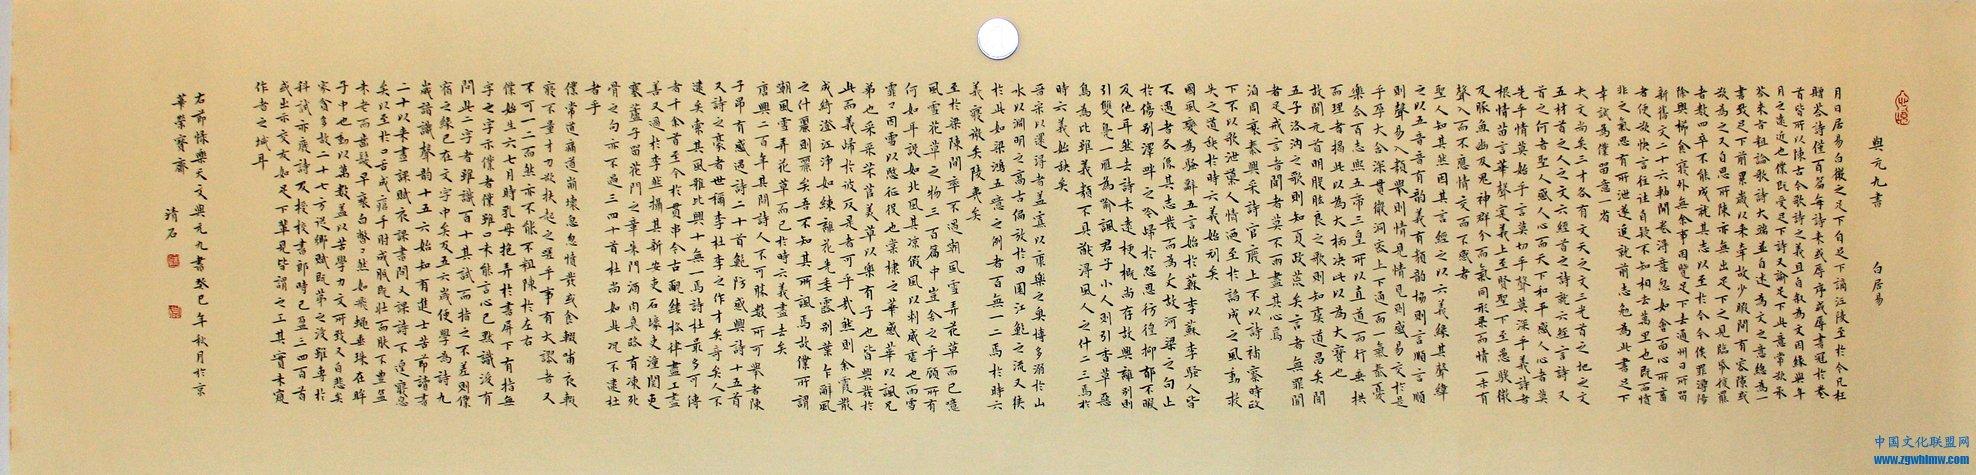 與元九書
白居易
月日居易白微之足下自足下謫江陵至於今凡枉
贈答詩僅百篇每詩來或辱序或辱書冠於卷
首皆所以陳古今歌詩之義且自敘為文因緣與年
月之遠近也僕既受足下詩又諭足下此意常欲承
答來旨粗論歌詩大端並自述為文之意總為一
書致足下前累歲以來牽故少暇間有容隙或
欲為之又自思所陳亦無出足下之見臨紙復罷
者數四卒不能成就其志以至於今今俟罪潯陽
除盥櫛食寢外無餘事因覽足下去通州日所留
新舊文二十六軸開卷得意忽如會面心所畜
者便欲快言往往自疑不知相去萬里也既而憤
悱之氣思有所泄遂追就前志勉為此書足下
幸試為僕留意一省
夫文尚矣三才各有文天之文三光首之地之文
五材首之人之文六經首之就六經言詩又
首之何者聖人感人心而天下和平感人心者莫
先乎情莫始乎言莫切乎聲莫深乎義詩者
根情苗言華聲實義上至賢聖下至愚騃微
及豚魚幽及鬼神群分而氣同形異而情一未有
聲入而不應情交而不感者
聖人知其然因其言經之以六義緣其聲緯
之以五音音有韻義有類韻協則言順言順
則聲易入類舉則情見情見則感易交於是
乎孕大含深貫微洞密上下通而一氣泰憂
樂合百志熙五帝三皇所以直道而行垂拱
而理者揭此以為大柄決此以為大竇也
故聞元首明股肱良之歌則知虞道昌矣聞
五子洛汭之歌則知夏政荒矣言者無罪聞
者足戒言者聞者莫不兩盡其心焉
洎周衰秦興采詩官廢上不以詩補察時政
下不以歌泄導人情乃至於諂成之風動救
失之道缺於時六義始刓矣
國風變為騷辭五言始於蘇李蘇李騷人皆
不遇者各繫其志發而為文故河梁之句止
於傷別澤畔之吟歸於怨思彷徨抑郁不暇
及他耳然去詩未遠梗概尚存故興離別則
引雙鳧一雁為喻諷君子小人則引香草惡
鳥為比雖義類不具猶得風人之什二三焉於
時六義始缺矣
晉宋以還得者蓋寡以康樂之奧博多溺於山
水以淵明之高古偏放於田園江鮑之流又狹
於此如梁鴻五噫之例者百無一二焉於時六
義寢微矣陵夷矣
至於梁陳間率不過嘲風雪弄花草而已噫
風雪花草之物三百篇中豈舍之乎顧所用
何如耳設如北風其涼假風以刺威虐也雨雪
霏霏因雪以愍征役也棠棣之華感華以諷兄
弟也采采芣苢美草以樂有子也皆興發於
此而義歸於彼反是者可乎哉然則余霞散
成綺澄江淨如練離花先委露別葉乍辭風
之什麗則麗矣吾不知其所諷焉故僕所謂
嘲風雪弄花草而已於時六義盡去矣
唐興二百年其間詩人不可勝數所可舉者陳
子昂有感遇詩二十首鮑防感興詩十五首
又詩之豪者世稱李杜李之作才矣奇矣人不
逮矣索其風雅比興十無一焉杜詩最多可傳
者千余首至於貫串今古覼縷格律盡工盡
善又過於李然撮其新安吏石壕吏潼關吏
塞蘆子留花門之章朱門酒肉臭路有凍死
骨之句亦不過三四十首杜尚如此況不逮杜
者乎
僕常痛詩道崩壞忽忽憤發或食輟哺夜輟
寢不量才力欲扶起之嗟乎事有大謬者又
不可一二而言然亦不能不粗陳於左右
僕始生六七月時乳母抱弄於書屏下有指無
字之字示僕者僕雖口未能言心已默識後有
問此二字者雖百十其試而指之不差則僕
宿習之緣已在文字中矣及五六歲便學為詩九
歲諳識聲韻十五六始知有進士苦節讀書
二十以來晝課賦夜課書間又課詩不遑寢息
矣以至於口舌成瘡手肘成胝既壯而膚革不豐盈
未老而齒髮早衰白瞥然如飛蠅垂珠在眸
子中也動以萬數蓋以苦學力文所致又自悲矣
家貧多故二十七方從鄉賦既第之後雖專於
科試亦不廢詩及授校書郎時已盈三四百首
或出示交友如足下輩見皆謂之工其實未窺
作者之域耳
右節慘樂天文與元九書癸巳年秋月於京
華榮寶齋
清石
中国文化联盟网
www.zgwhlmw.com